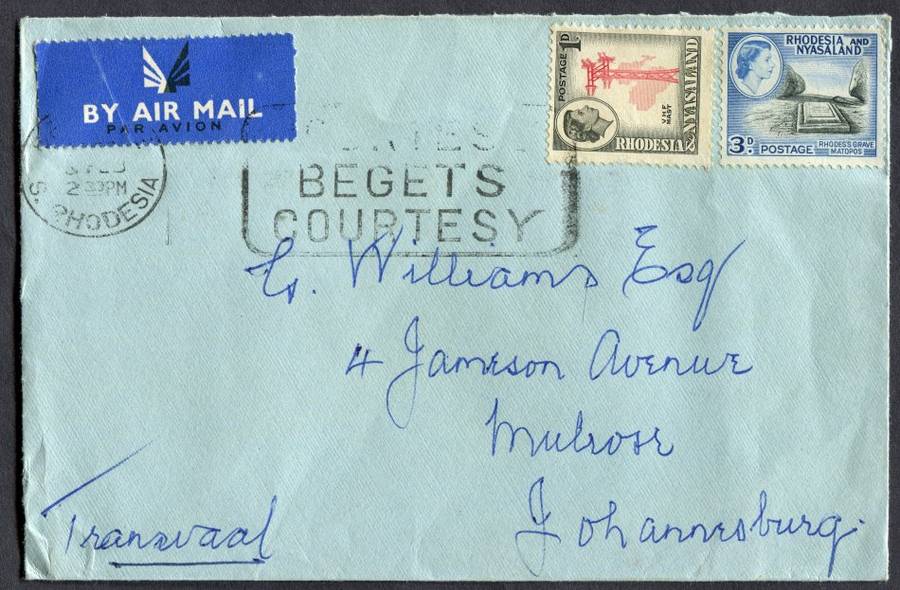 BY AIR MAIL
PAR AVION
POSTAGE 1D
VHF MAST
RHODESIA & NYASALAND
RHODESIA AND NYASALAND
3D. POSTAGE
RHODES'S GRAVE MATOPOS
2 30PM
S. RHODESIA
BEGETS
COURTESY
G. Williams Esq
4 Jameson Avenue
Melrose
Johannesburg.
Transvaal